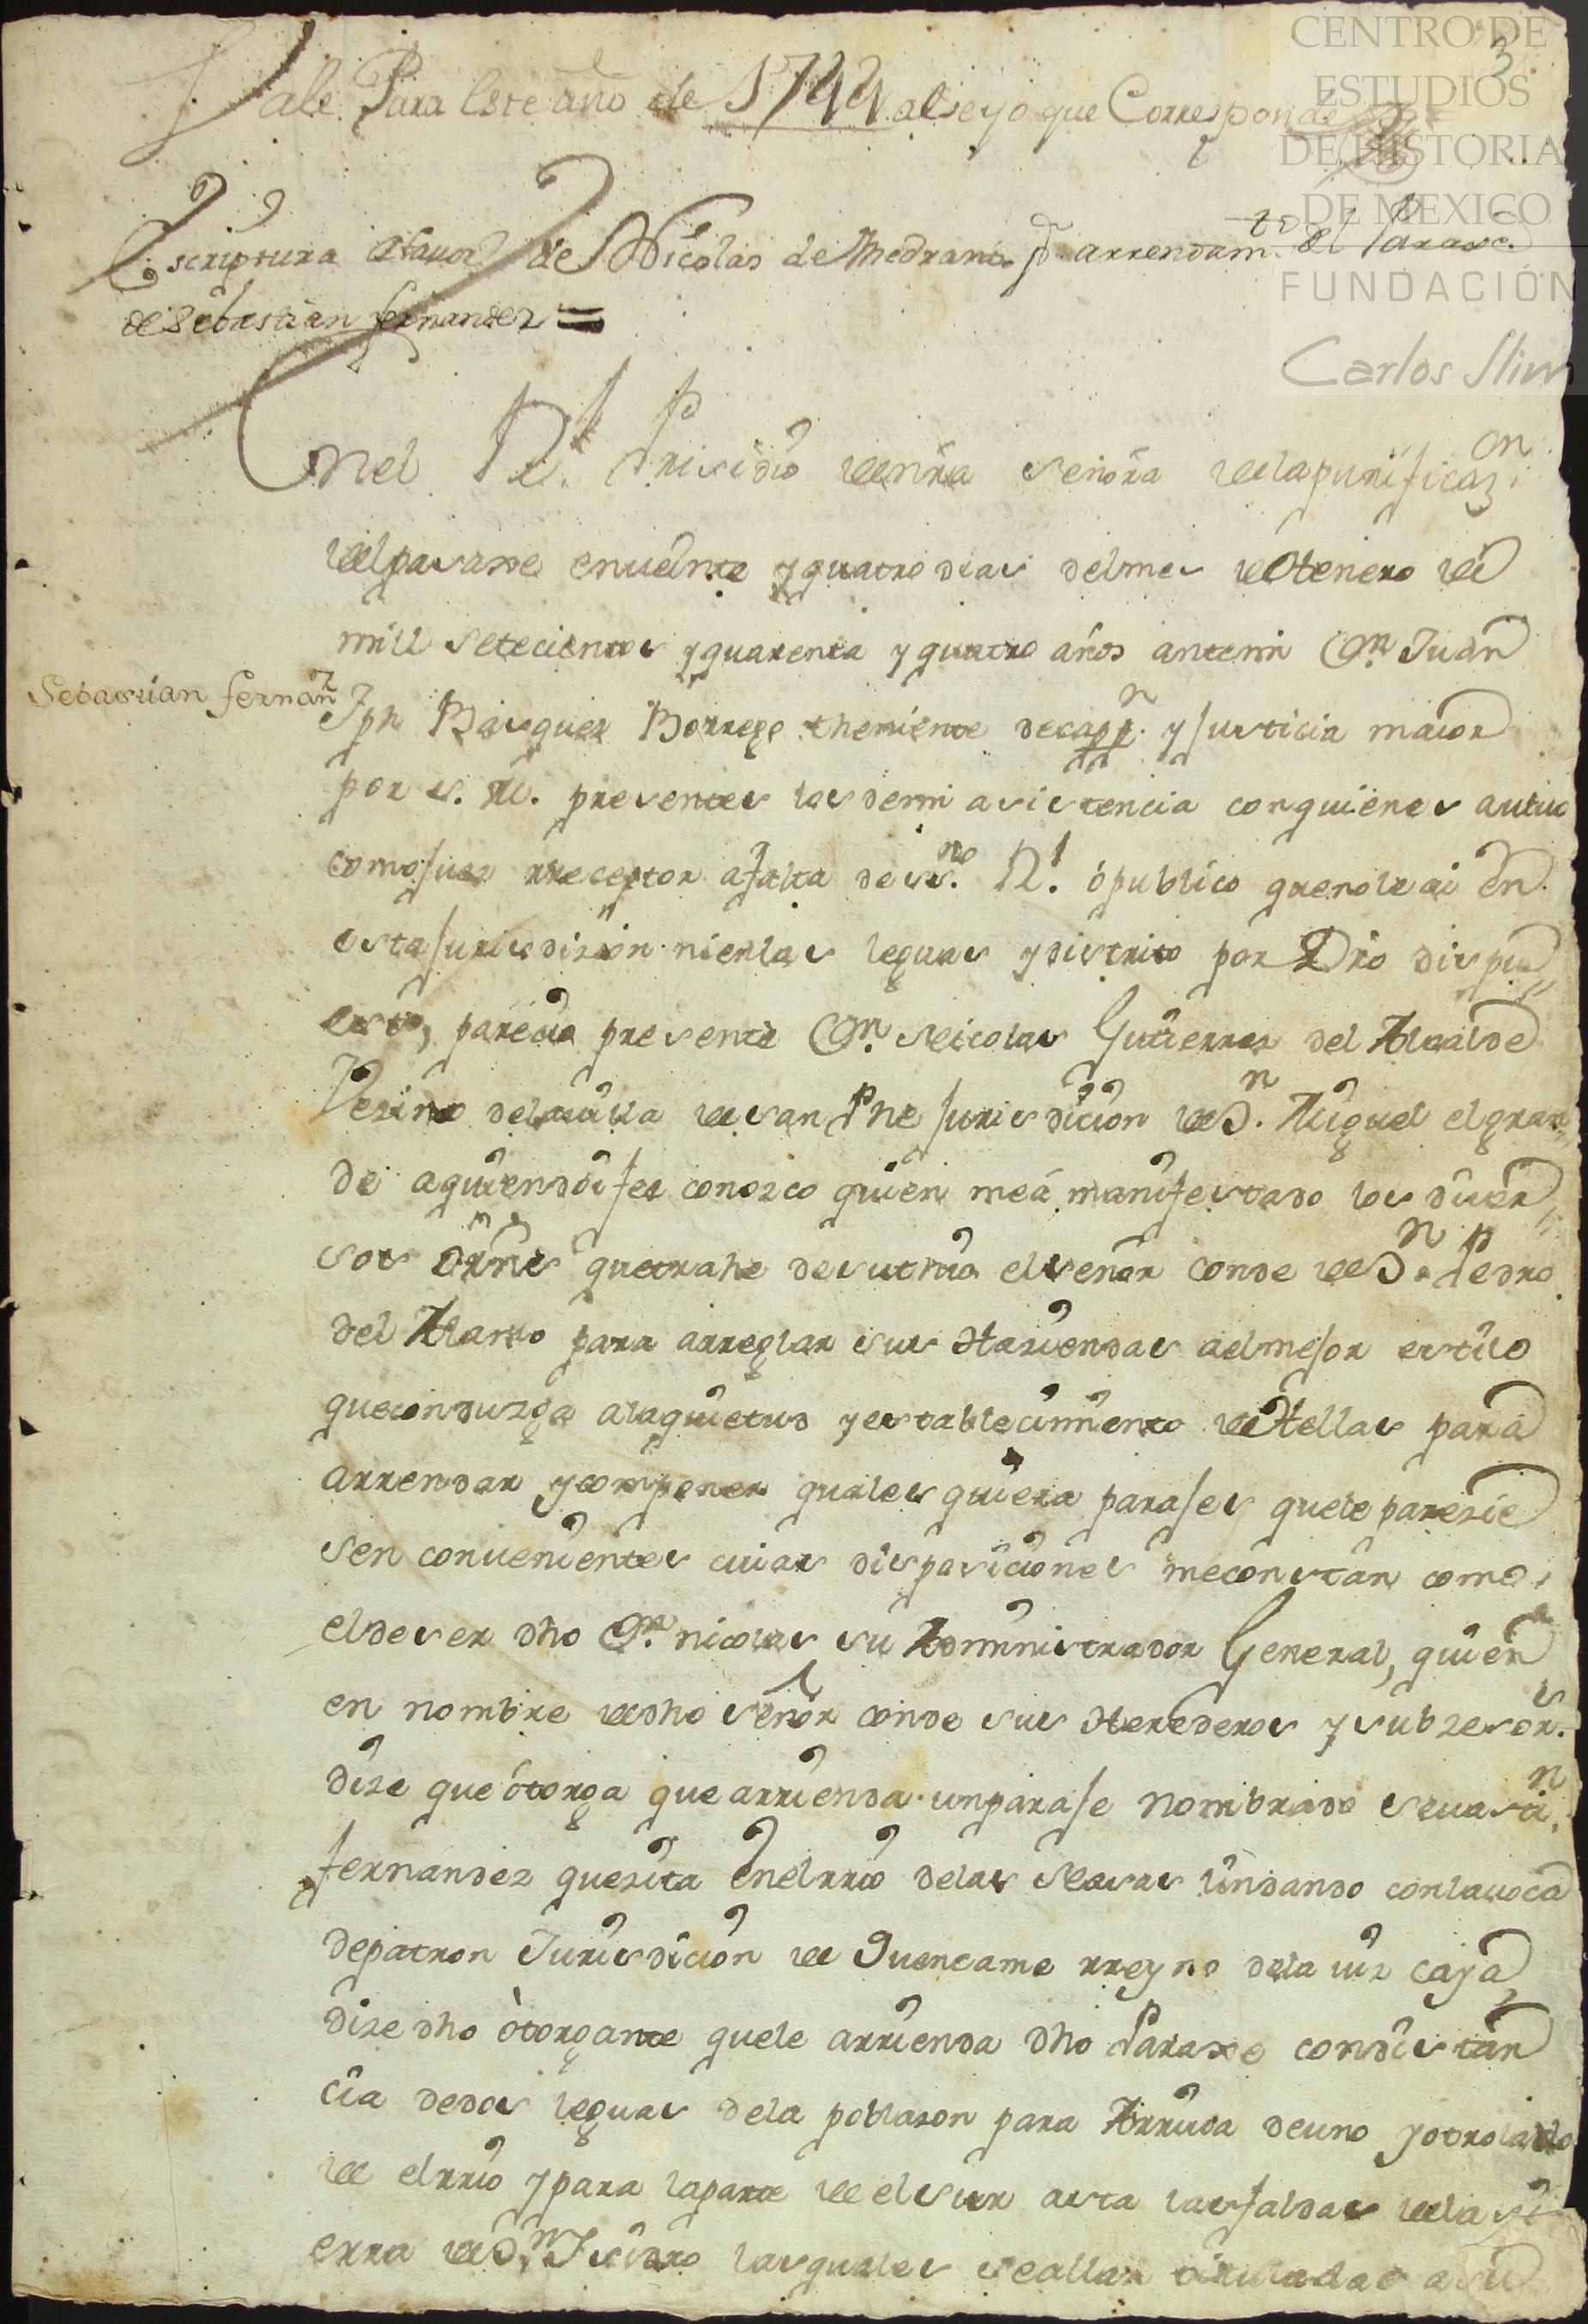 CENTRO DE
ESTUDIOS
DE HISTORIA
DE MEXICO
FUNDACIÓN
Carlos Slim
3
Vale Para Este año de 1744 al seyo que Corresponde
Escriptura afauor de Nicolas de Medrano pr arrendamto. del Paraxe
de Sebastian fernandez =
Enel Rl. Prisidio de nrã Señora de la purificazon.
del pasaxe en veinte y quatro dias del mes de Henero de
mill setecientos y quarenta y quatro años ante mi Dn. Juan
Sebastian fernanz
Jph Basquez Borrego theniente de cappn. y Justicia maior
por s. M. presentes los de mi asistencia con quienes autuo
como Juez rreceptor afalta de ssno. Rl. ò publico que no le ai en
esta Jurisdizion ni en las leguas y distrito por Dro dispu
esto, parecio presente Dn. Nicolas Gutierrez del Alcalde
Vezino de la villa de san Phe Jurisdicion de Sn. Miguel el gran
de a quien doi fee conozco quien me à manifestado los diuer
sos ôrñes que trahe de su thio el señor conde de Sn. Pedro
del Alamo para arreglar sus Haziendas a el mejor estilo
que conduzga a la quietud y establecimiento de Hellas para
arrendar y componer quales quiera parajes que le parezie
sen conuenientes cuias disposiciones me constan como
el de ser dho Dn. nicolas su Administrador General, quien
en nombre de dho señor conde sus Herederos y subzesors.
dize que òtorga que arrienda un paraje nombrado seuastin.
fernandez que zita en el rrio de las Nasas lindando con la uoca
de patron Jurisdicion de Cuencame rreyno de la viz caya
dize dho òtorgante que le arrienda dho Paraxe con distan
cia de dos leguas de la poblazon para Arriua de uno y otro lado
de el rrio y para la parte de el sur asta las faldas de la si
erra de Sn. Isidro las quales se allan tituladas a su